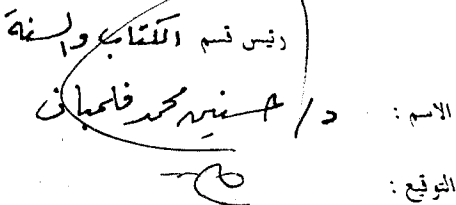 رئيس قسم الكتاب والسنة
الاسم : د / حسنين محمد فلمبان
التوقيع :